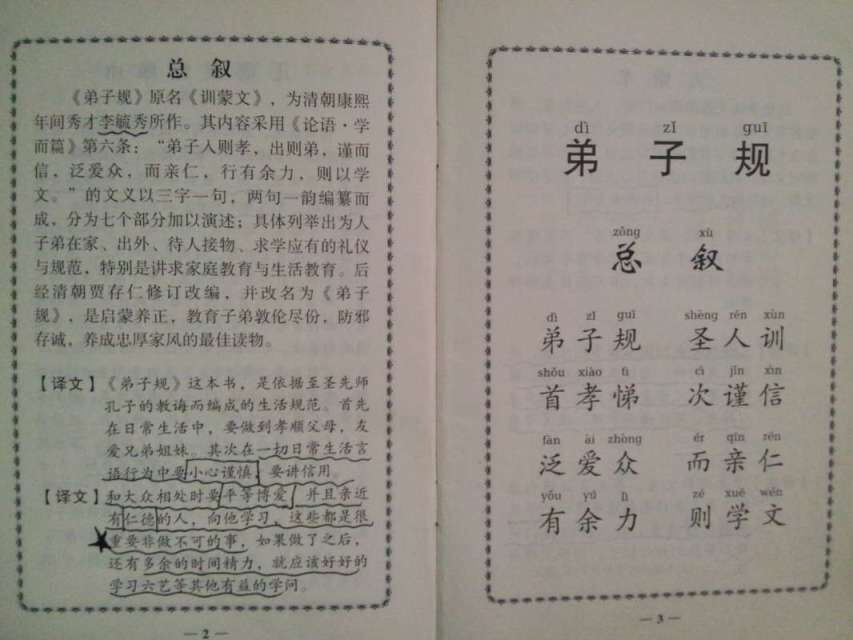 总 叙
《弟子规》原名《训蒙文》，为清朝康熙
年间秀才李毓秀所作。其内容采用《论语·学
而篇》第六条：“弟子入则孝，出则弟，谨而
信，泛爱众，而亲仁，行有余力，则以学
文。”的文义以三字一句，两句一韵编纂而
成，分为七个部分加以演述；具体列举出为人
子弟在家、出外、待人接物、求学应有的礼仪
与规范，特别是讲求家庭教育与生活教育。后
经清朝贾存仁修订改编，并改名为《弟子
规》，是启蒙养正，教育子弟敦伦尽份，防邪
存诚，养成忠厚家风的最佳读物。
【译文】《弟子规》这本书，是依据至圣先师
孔子的教诲而编成的生活规范。首先
在日常生活中，要做到孝顺父母，友
爱兄弟姐妹。其次在一切日常生活言
语行为中要小心谨慎，要讲信用。
【译文】和大众相处时要平等博爱，并且亲近
有仁德的人，向他学习，这些都是很
重要非做不可的事，如果做了之后，
还有多余的时间精力，就应该好好的
学习六艺等其他有益的学问。
—2—
dì zǐ guī
弟 子 规
zǒng xù
总 叙
dì zǐ guī shèng rén xùn
弟 子 规 圣 人 训
shǒu xiào tì cì jǐn xìn
首 孝 悌 次 谨 信
fàn ài zhòng ér qīn rén
泛 爱 众 而 亲 仁
yǒu yú lì zé xué wén
有 余 力 则 学 文
—3—